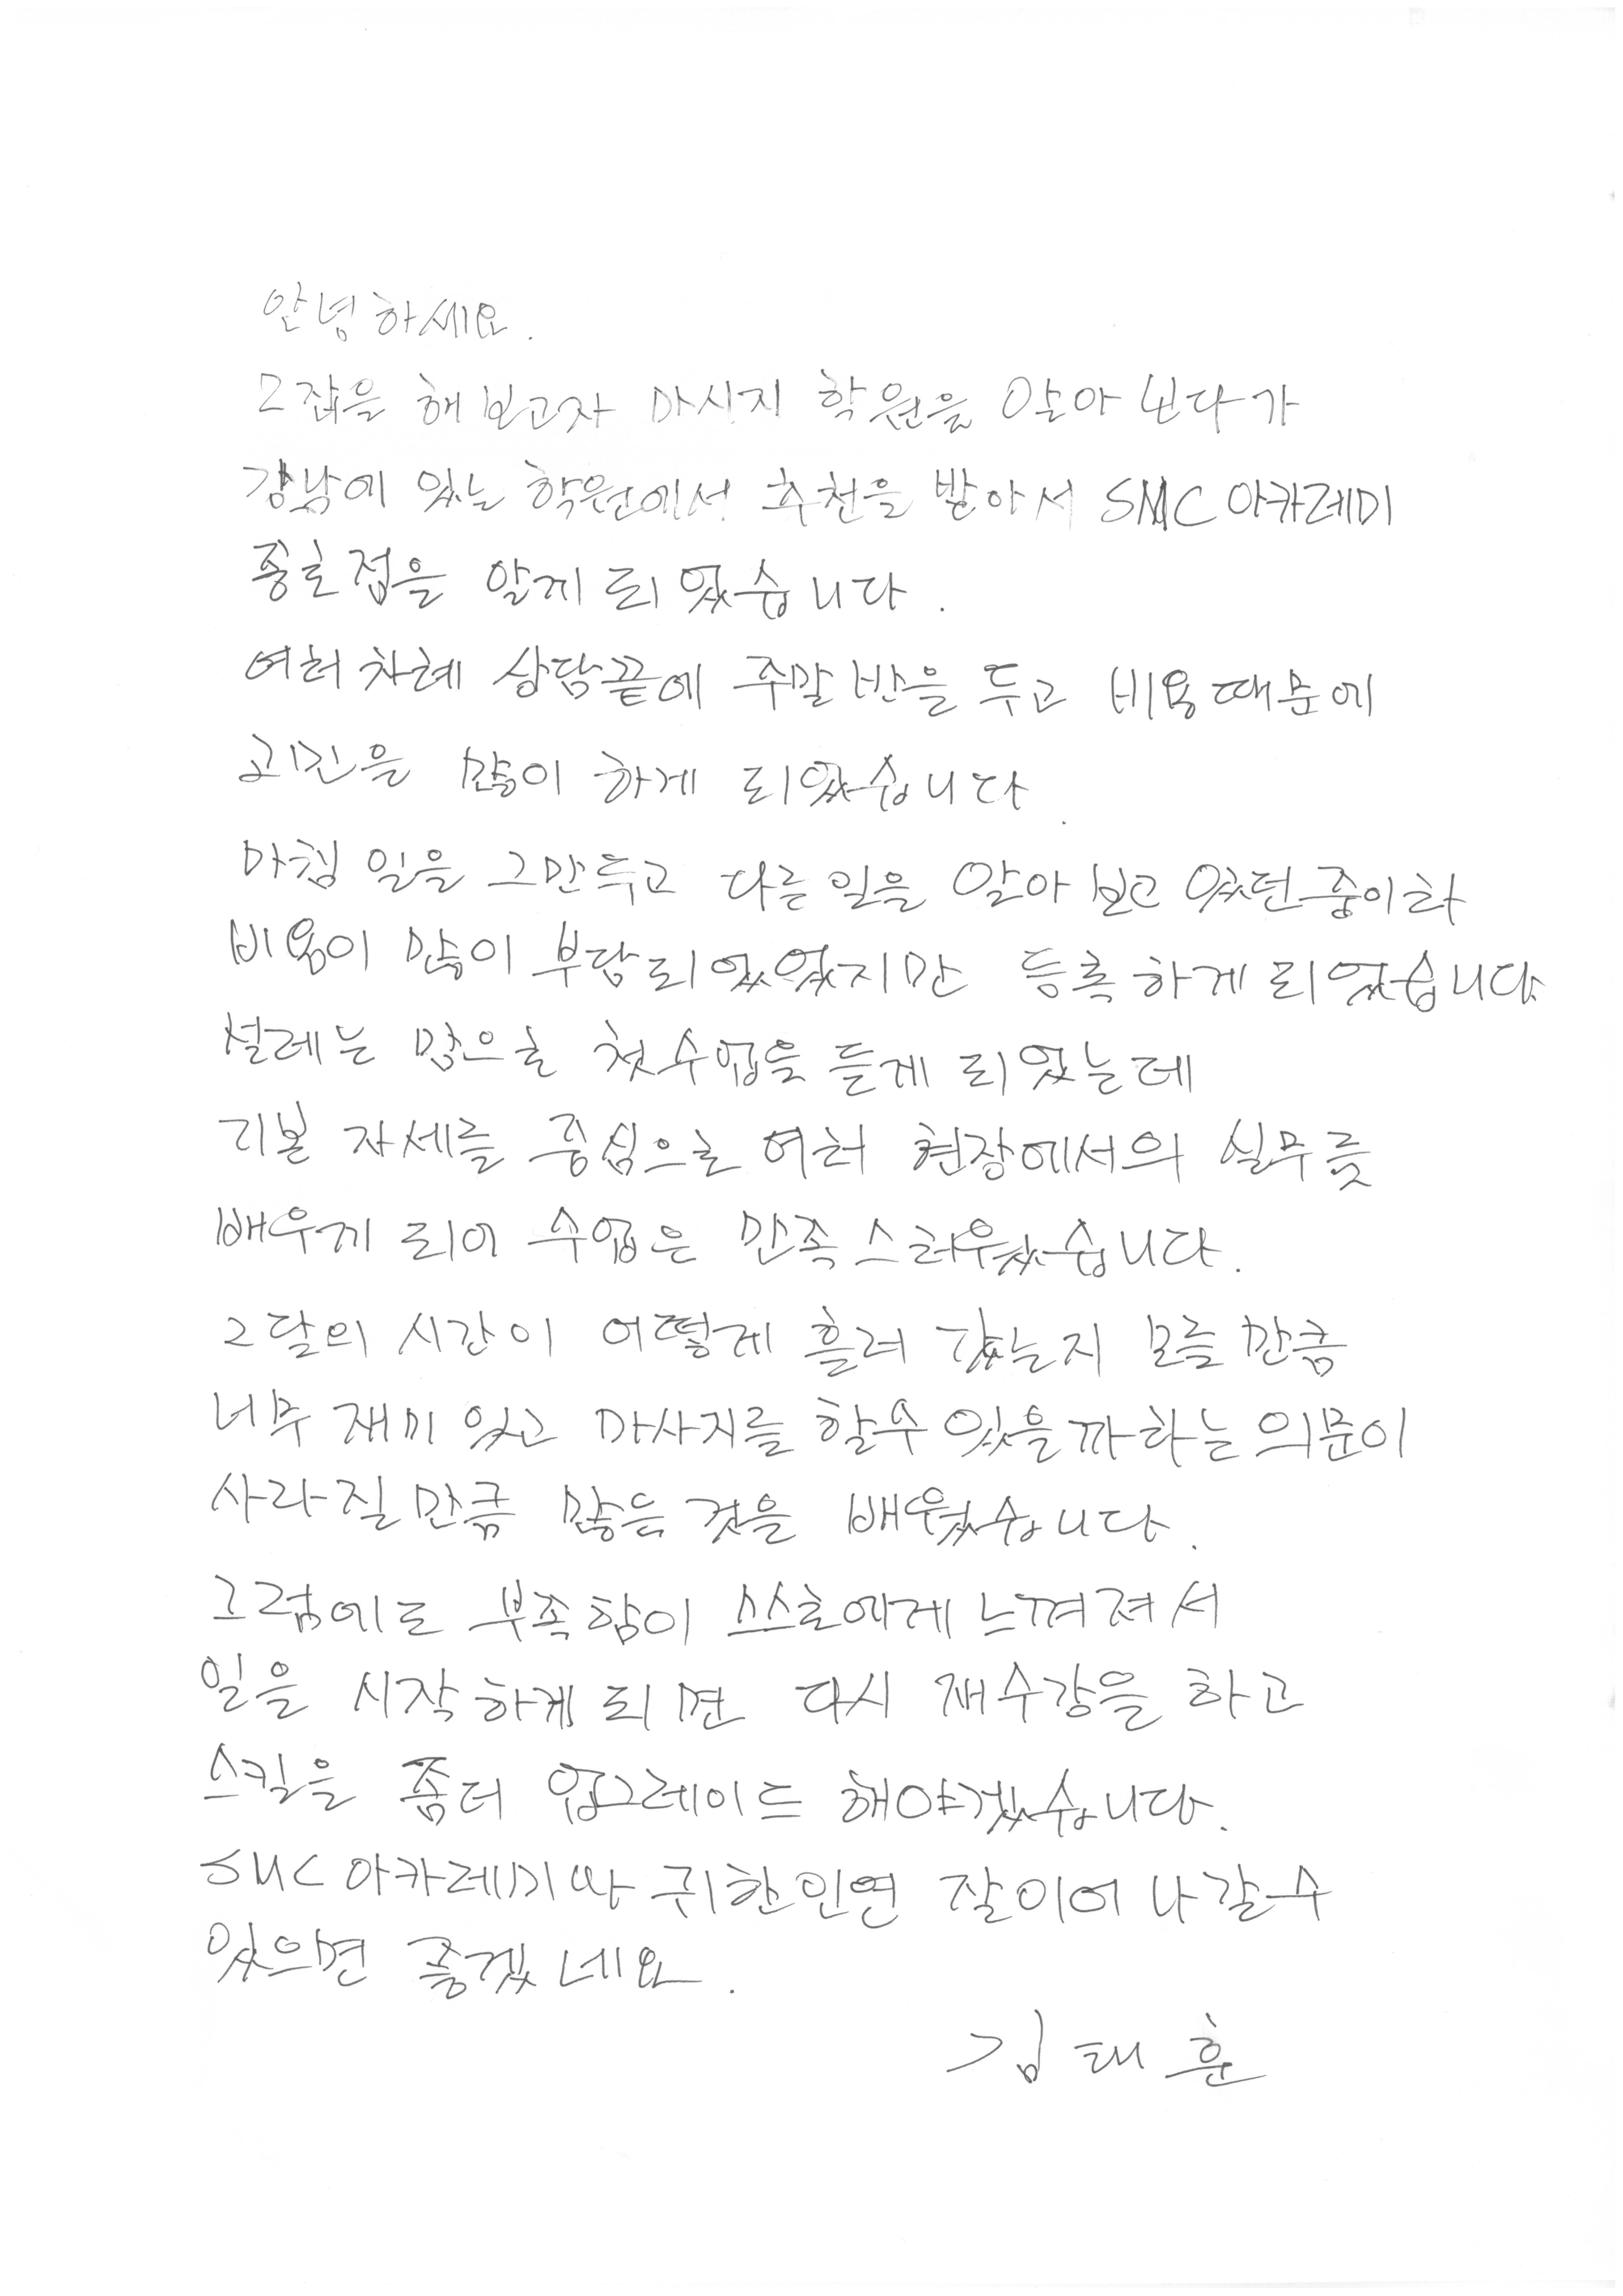 안녕하세요.
2잡을 해보고자 마사지 학원을 알아 본다가
강남에 있는 학원에서 추천을 받아서 SMC 아카데미
종로점을 알게 되었습니다.
여러차례 상담끝에 주말반을 두고 비용때문에
고민을 많이 하게 되었습니다.
마침 일을 그만두고 다른일을 알아 보고 있던중이라
비용이 많이 부담되었었지만 등록하게 되었습니다
설레는 맘으로 첫수업을 듣게 되었는데
기본 자세를 중심으로 여러 현장에서의 실무를
배우게 되어 수업은 만족스러웠습니다.
2달의 시간이 어떻게 흘러 갔는지 모를만큼
너무 재미 있고 마사지를 할수 있을까하는 의문이
사라질만큼 많은 것을 배웠습니다.
그럼에도 부족함이 스스로에게 느껴져서
일을 시작하게되면 다시 재수강을 하고
스킬을 좀더 업그레이드 해야겠습니다.
SMC 아카데미와 귀한인연 잘이어 나갈수
있으면 좋겠네요.
김태훈